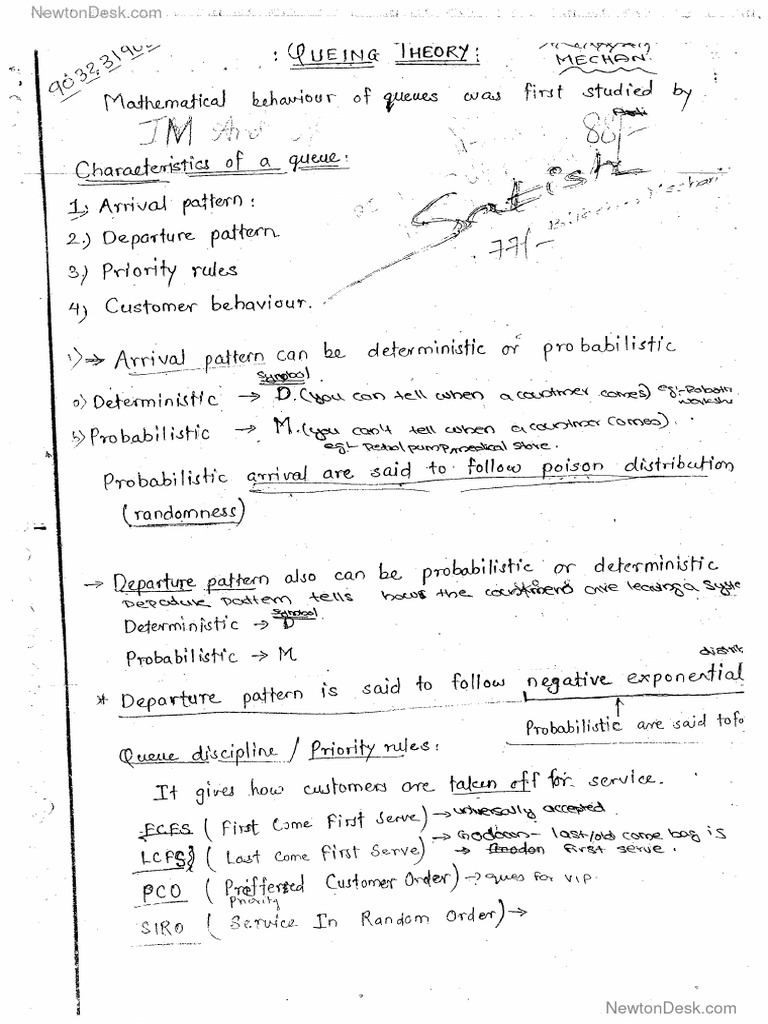 NewtonDesk.com
: QUEING THEORY :
MECHAN.
Mathematical behaviour of queues was first studied by
88/-
Satish
77/-
Characteristics of a queue:
1) Arrival pattern:
2.) Departure pattern
3) Priority rules
4) Customer behaviour.
1) → Arrival pattern can be deterministic or probabilistic
Symbol
a) Deterministic → D. (you can tell when a coustmer comes) eg:-
b) Probabilistic → M. (you can't tell when a coustmer comes).
eg:- Petrol pump, medical store.
Probabilistic arrival are said to follow poison distribution
(randomness)
→ Departure pattern also can be probabilistic or deterministic
Depature pattern tells how the coustmers are leaving a syste
Symbol
Deterministic → D
Probabilistic → M
distrib
* Departure pattern is said to follow negative exponential
Probabilistic are said tofo
Queue discipline / Priority rules:
It gives how customers are taken off for service.
FCFS ( First Come First Serve) → universally accepted.
LCFS ( Last Come First Serve) → Godown - last/old come bag is
→ first serve.
PCO ( Preffersed Customer Order) → ques for VIP.
Priority
SIRO ( Service In Random Order) →
NewtonDesk.com